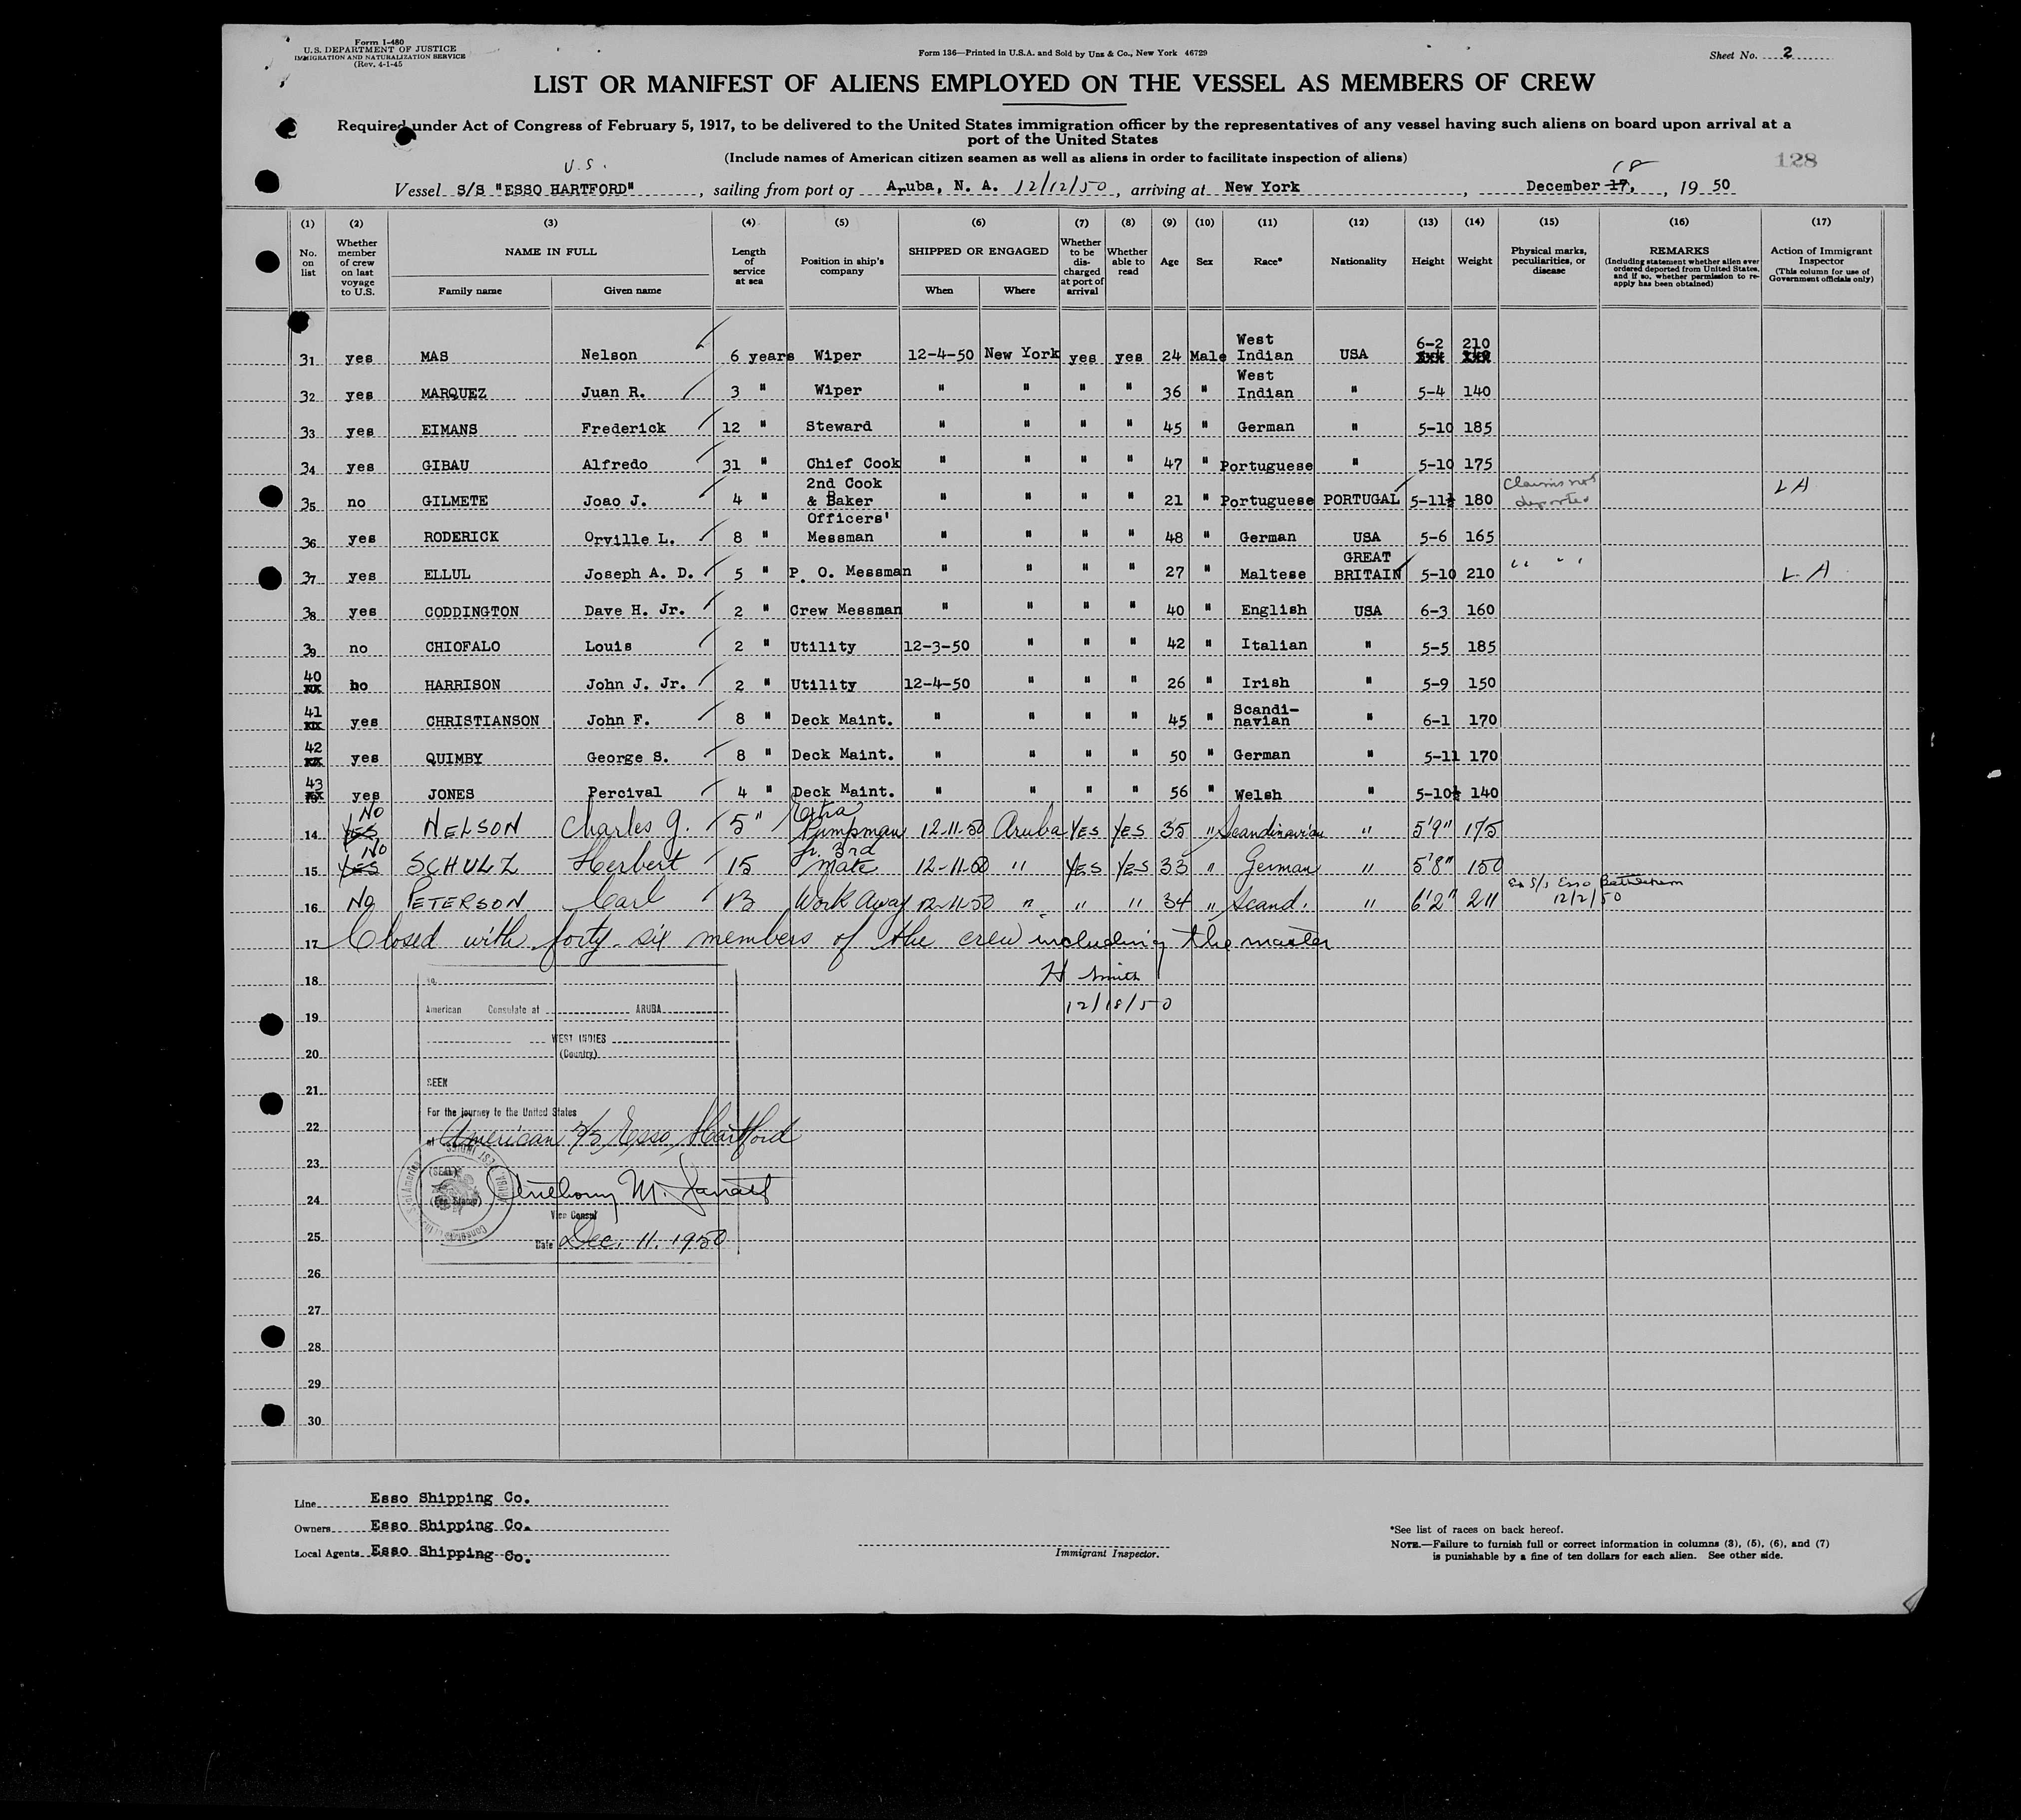 Form 1-480
U.S. DEPARTMENT OF JUSTICE
IMMIGRATION AND NATURALIZATION SERVICE
(Rev. 4-1-45
Form 136—Printed in U.S.A. and Sold by Unz & Co., New York 46729
Sheet No. 2
LIST OR MANIFEST OF ALIENS EMPLOYED ON THE VESSEL AS MEMBERS OF CREW
Required under Act of Congress of February 5, 1917, to be delivered to the United States immigration officer by the representatives of any vessel having such aliens on board upon arrival at a
port of the United States
(Include names of American citizen seamen as well as aliens in order to facilitate inspection of aliens)
128
U.S. 18
Vessel S/S "ESSO HARTFORD", sailing from port of Aruba, N. A. 12/12/50, arriving at New York, December 17, 1950
(1) (2) (3) (4) (5) (6) (7) (8) (9) (10) (11) (12) (13) (14) (15) (16) (17)
No. on list
Whether member of crew on last voyage to U.S.
NAME IN FULL
Family name
Given name
Length of service at sea
Position in ship's company
SHIPPED OR ENGAGED
When
Where
Whether to be discharged at port of arrival
Whether able to read
Age
Sex
Race*
Nationality
Height
Weight
Physical marks, peculiarities, or disease
REMARKS
(Including statement whether alien ever ordered deported from United States, and if so, whether permission to re-apply has been obtained)
Action of Immigrant Inspector
(This column for use of Government officials only)
31 yes MAS Nelson 6 years Wiper 12-4-50 New York yes yes 24 Male West Indian USA 6-2 210
32 yes MARQUEZ Juan R. 3 " Wiper " " " " 36 " West Indian " 5-4 140
33 yes EIMANS Frederick 12 " Steward " " " " 45 " German " 5-10 185
34 yes GIBAU Alfredo 31 " Chief Cook " " " " 47 " Portuguese " 5-10 175
35 no GILMETE Joao J. 4 " 2nd Cook & Baker " " " " 21 " Portuguese PORTUGAL 5-11½ 180 Claims not deported LA
36 yes RODERICK Orville L. 8 " Officers' Messman " " " " 48 " German USA 5-6 165
37 yes ELLUL Joseph A. D. 5 " P. O. Messman " " " " 27 " Maltese GREAT BRITAIN 5-10 210 " " " LA
38 yes CODDINGTON Dave H. Jr. 2 " Crew Messman " " " " 40 " English USA 6-3 160
39 no CHIOFALO Louis 2 " Utility 12-3-50 " " " 42 " Italian " 5-5 185
40 no HARRISON John J. Jr. 2 " Utility 12-4-50 " " " 26 " Irish " 5-9 150
41 yes CHRISTIANSON John F. 8 " Deck Maint. " " " " 45 " Scandi-navian " 6-1 170
42 yes QUIMBY George S. 8 " Deck Maint. " " " " 50 " German " 5-11 170
43 yes JONES Percival 4 " Deck Maint. " " " " 56 " Welsh " 5-10½ 140
14 YES No NELSON Charles J. 5 " Extra Pumpman 12-11-50 Aruba YES YES 35 " Scandinavian " 5'9" 175
15 YES No SCHULZ Herbert 15 Jr. 3rd Mate 12-11-50 " YES YES 33 " German " 5'8" 150
16 No PETERSON Carl 13 Work Away 12-11-50 " " " 34 " Scand. " 6'2" 211 Ex S/S Esso Bethlehem 12/2/50
17 Closed with forty six members of the crew including the master
18 H Smith
19 12/18/50
20
21
22
23
24
25
26
27
28
29
30
No.
American Consulate at ARUBA
WEST INDIES
(Country)
SEEN
For the journey to the United States
of American S/S Esso Hartford
(SEAL)
(Fee Stamp)
Anthony M.
Vice Consul
Date Dec. 11. 1950
Line Esso Shipping Co.
Owners Esso Shipping Co.
Local Agents Esso Shipping Co.
Immigrant Inspector.
*See list of races on back hereof.
NOTE.—Failure to furnish full or correct information in columns (3), (5), (6), and (7)
is punishable by a fine of ten dollars for each alien. See other side.